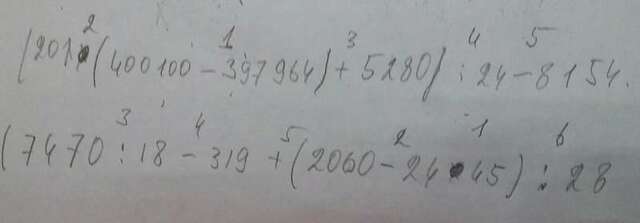 2 1 3 4 5
(201·(400100-397964)+5280):24-8154.
3 4 5 2 1 6
(7470:18-319+(2060-24·45):28